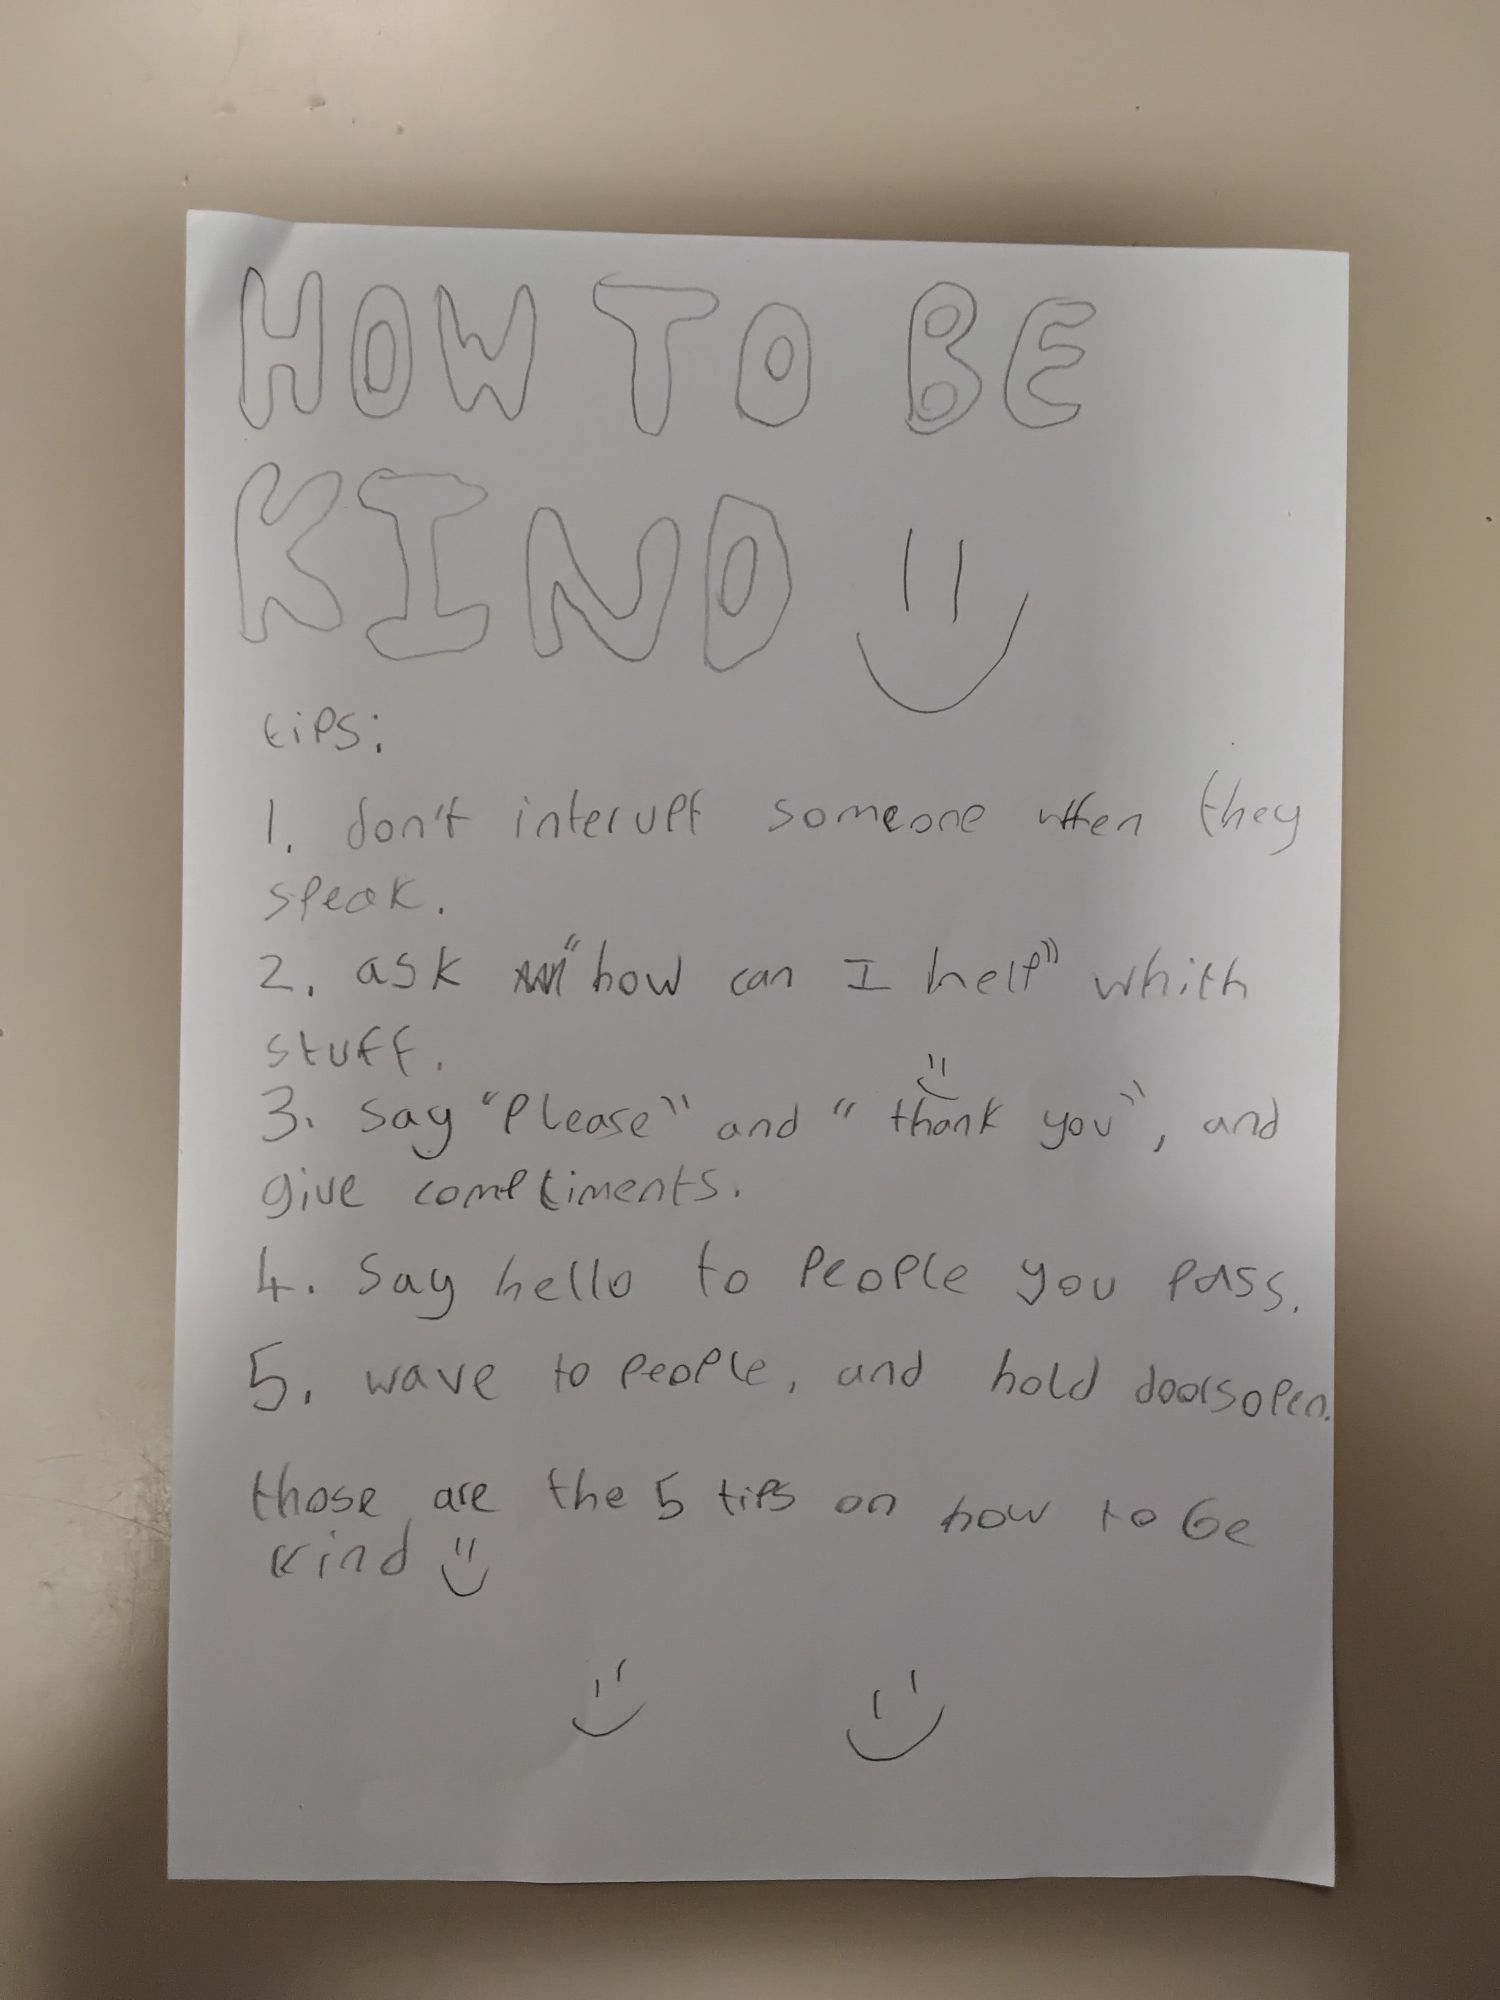 HOW TO BE
KIND
tips:
1. don't interupt someone when they
speak.
2. ask "how can I help" whith
stuff.
3. say "please" and "thank you", and
give compliments.
4. say hello to people you pass.
5. wave to people, and hold doors open.
those are the 5 tips on how to be
kind